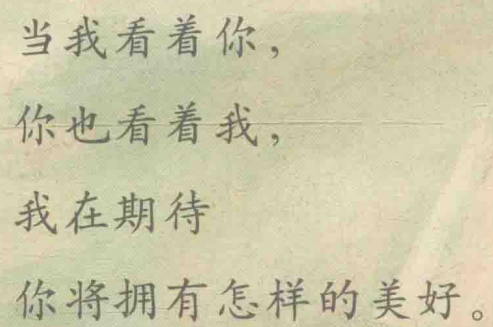 当我看着你，
你也看着我，
我在期待
你将拥有怎样的美好。